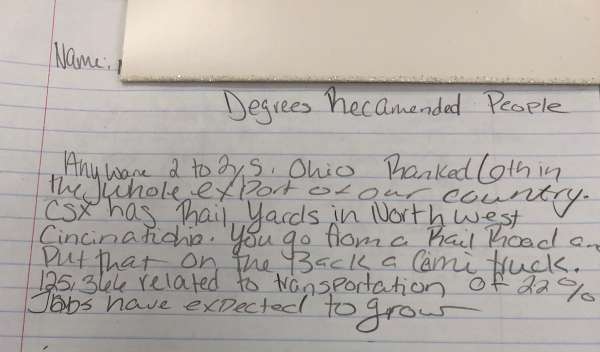 Name:
Degrees Recamended People
Anyware 2 to 2ys. Ohio Ranked 6th in
the Whole export of our country.
CSX has Rail Yards in North west
Cincinatiohio. You go from a Rail Road an
put that on the Back a Cemi truck.
125,366 related to transportation of 22%
Jobs have expected to grow